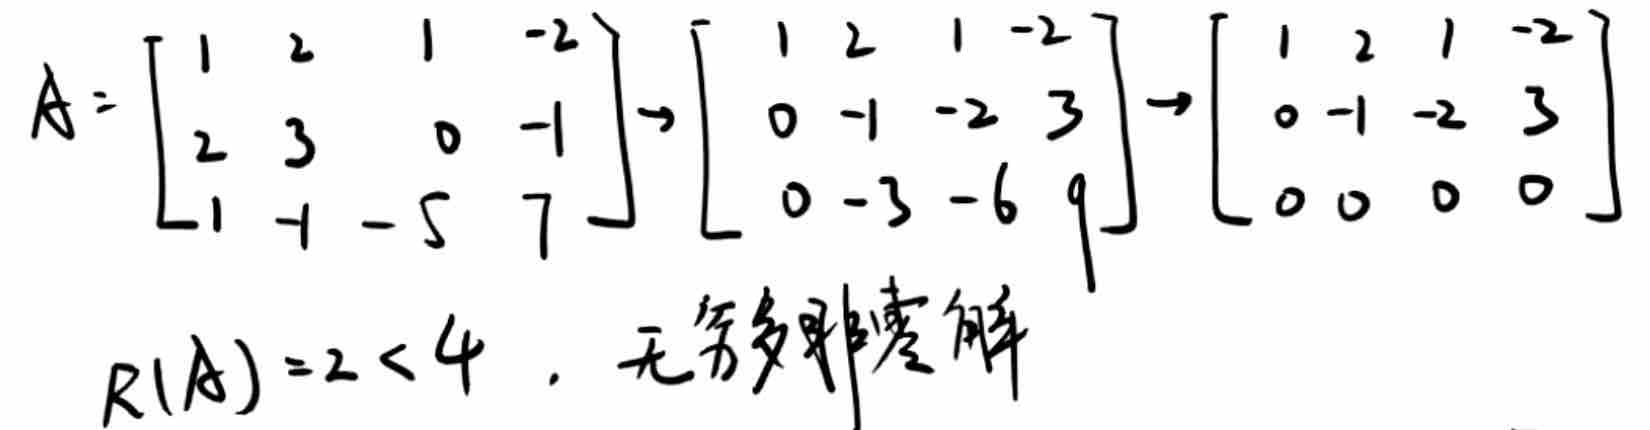 A = [1 2 1 -2; 2 3 0 -1; 1 -1 -5 7] → [1 2 1 -2; 0 -1 -2 3; 0 -3 -6 9] → [1 2 1 -2; 0 -1 -2 3; 0 0 0 0]
R(A) = 2 < 4 . 无穷多非零解